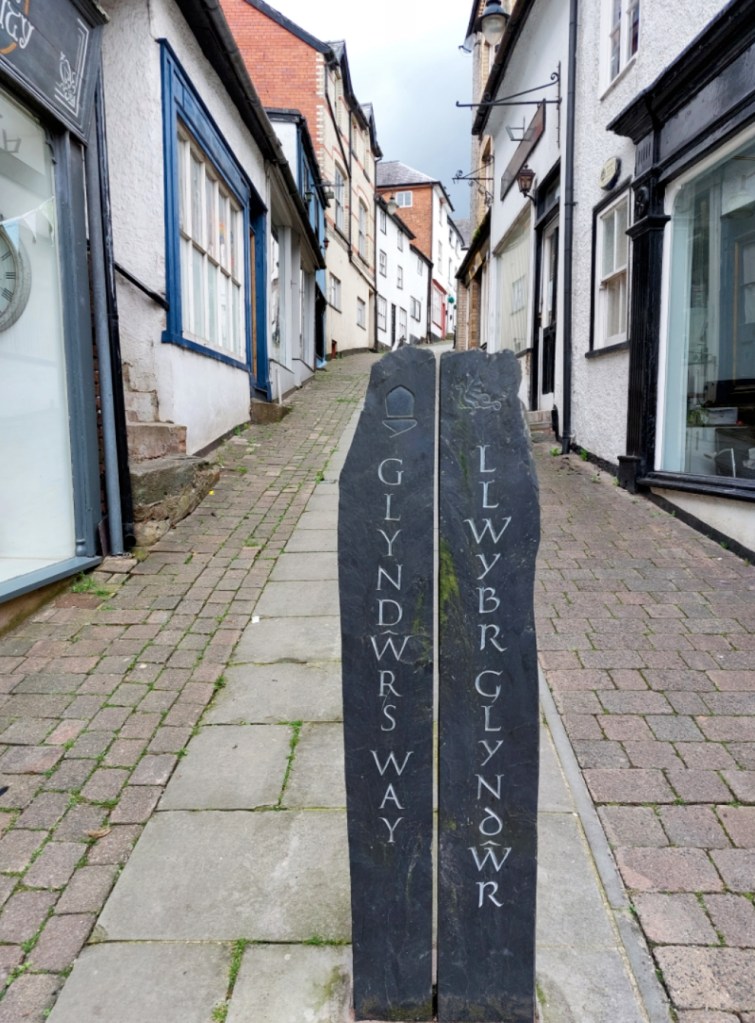 GLYNDŴRS WAY
LLWYBR GLYNDŴR